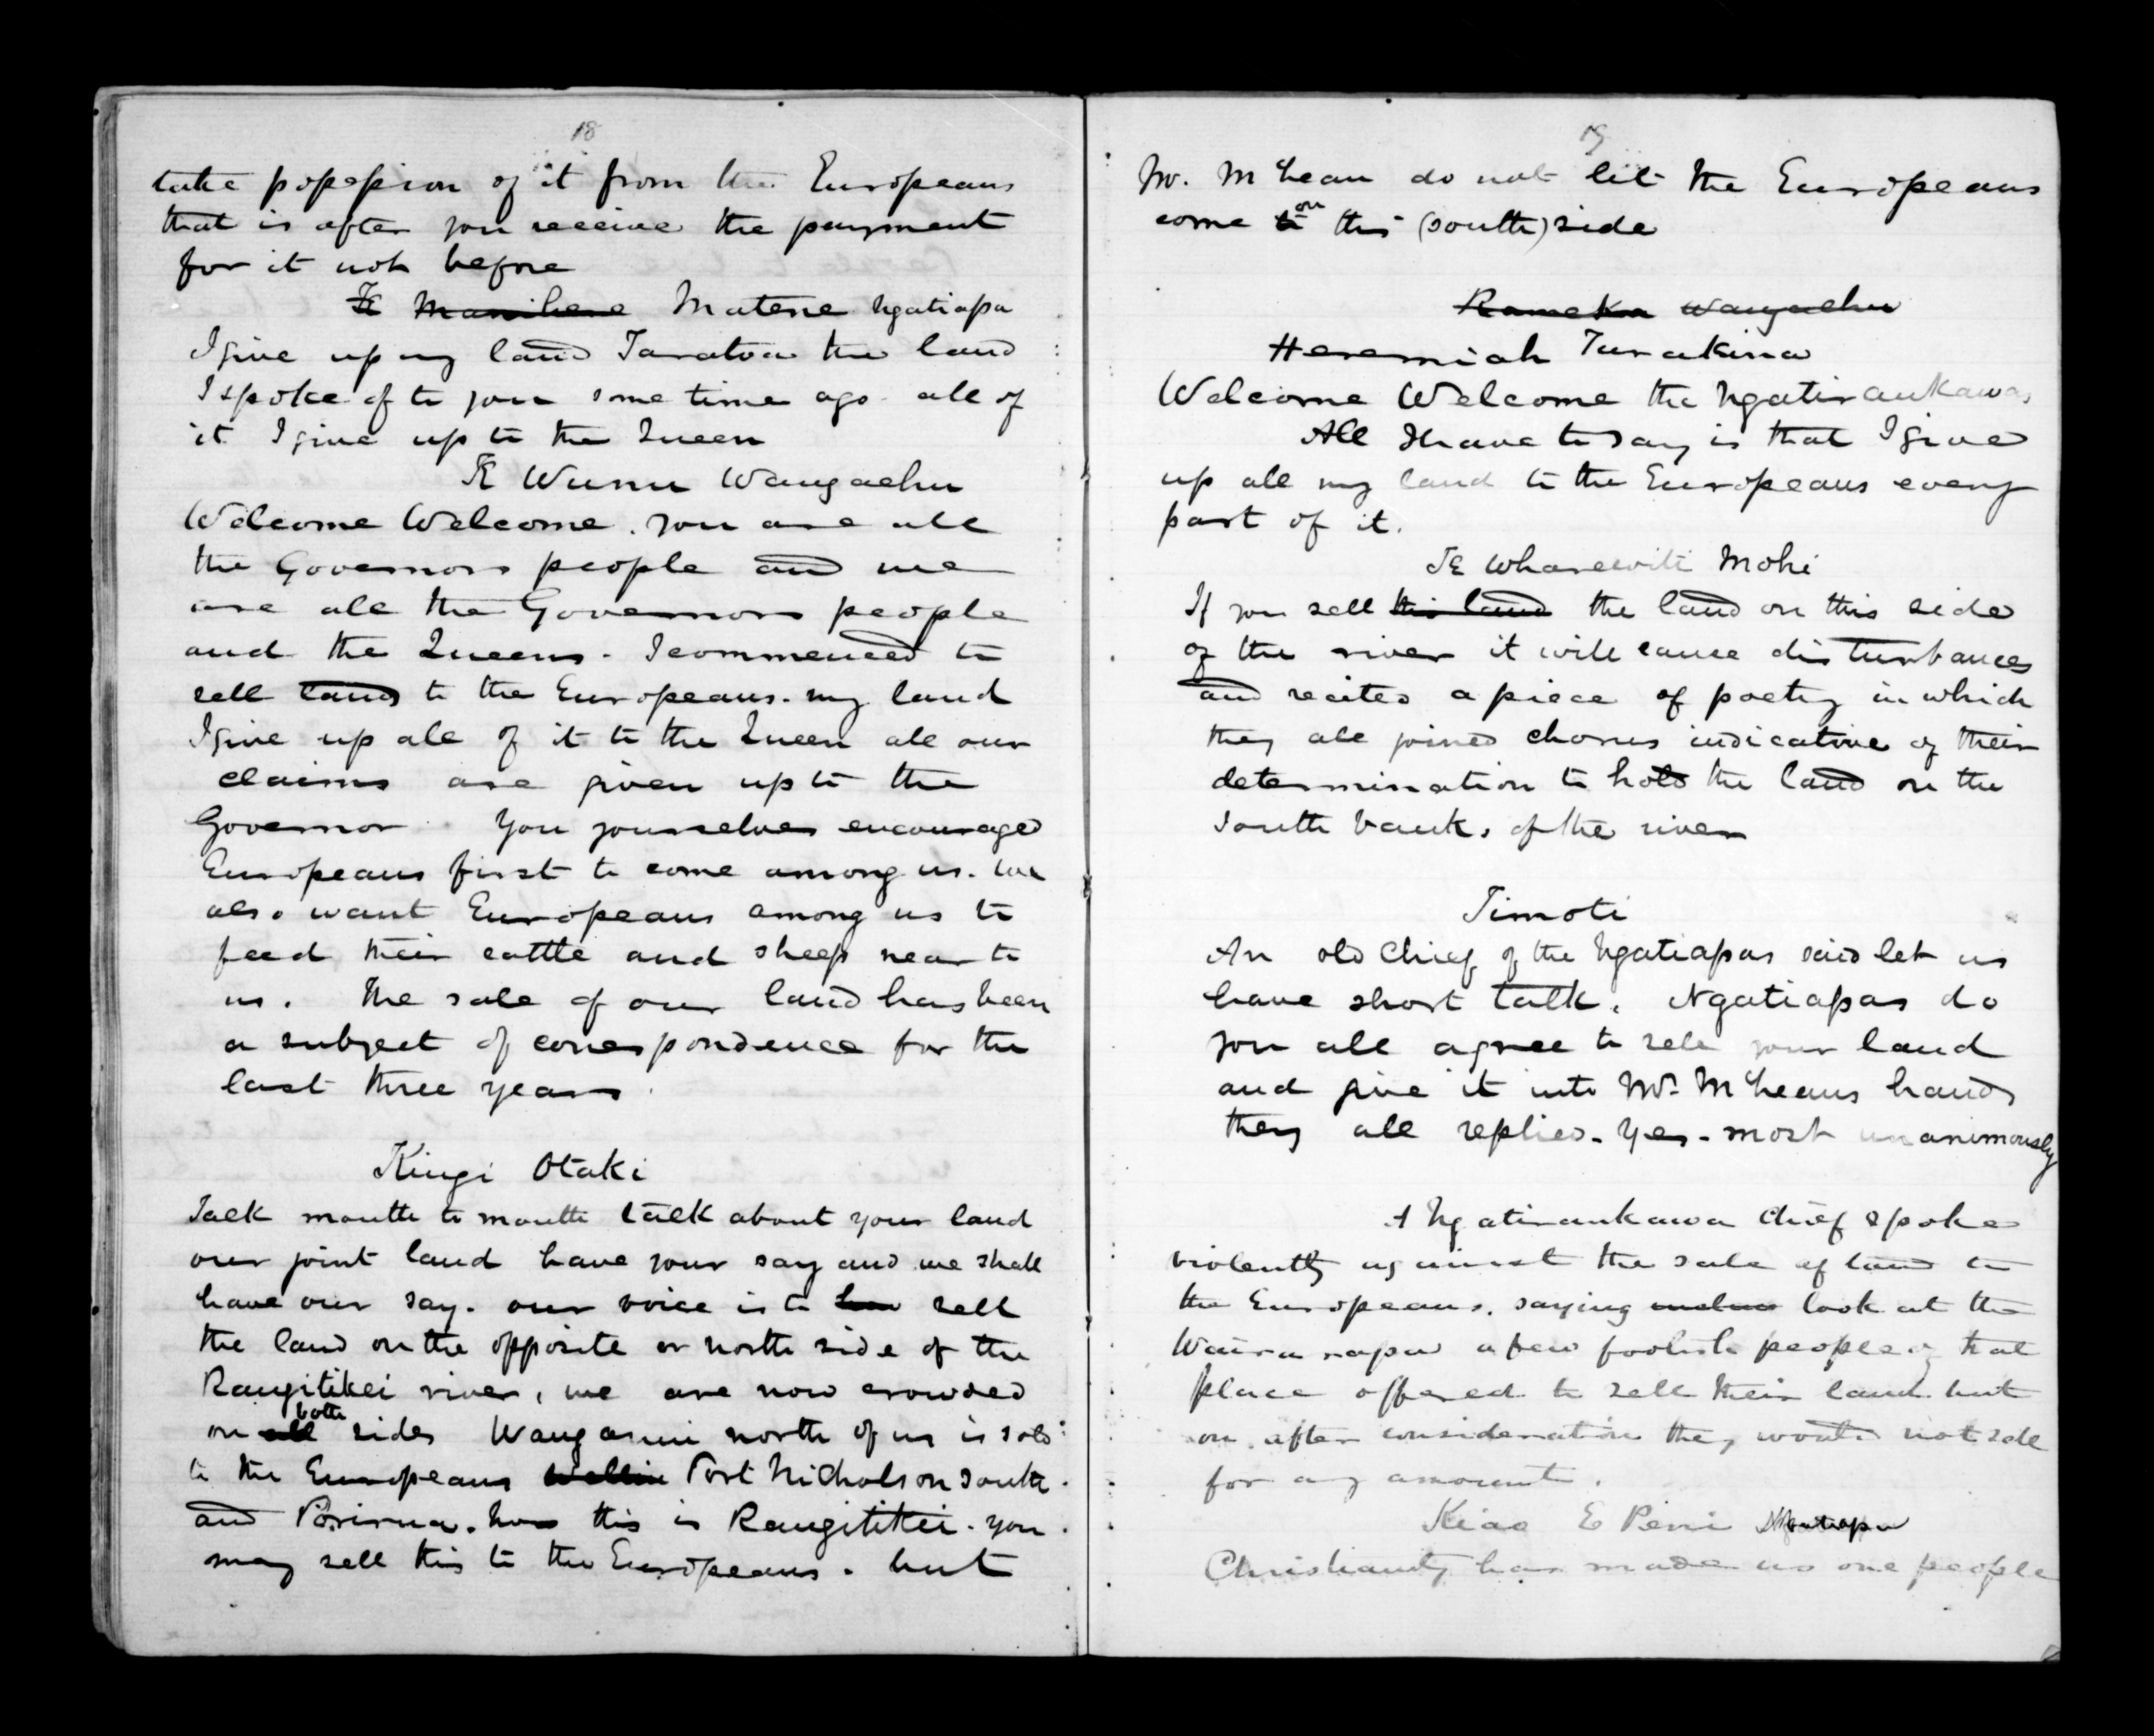 18
take possession of it from the Europeans
that is after you receive the payment
for it not before
Te Manihera Matene Ngatiapa
I give up my land Taratoa the land
I spoke of to you some time ago all of
it I give up to the Queen
Te Wunu Wangaehu
Welcome Welcome. you are all
the Governors people and we
are all the Governors people
and the Queens. I commenced to
sell land to the Europeans. my land
I give up all of it to the Queen all our
claims are given up to the
Governor. You yourselves encouraged
Europeans first to come among us. we
also want Europeans among us to
feed their cattle and sheep near to
us. The sale of our land has been
a subject of correspondence for the
last three years.
Kingi Otaki
Talk mouth to mouth talk about your land
our joint land have your say and we shall
have our say. our voice is to sell
the land on the opposite or north side of the
Rangitikei river, we are now crowded
on all both sides Wanganui north of us is sold
to the Europeans Wellin Port Nicholson south.
and Porirua. now this is Rangitikei. you
may sell this to the Europeans. but
19
Mr. McLean do not let the Europeans
come to on this (south) side
Rameka Wangaehu
Heremiah Turakina
Welcome Welcome the Ngatiraukawas
All I have to say is that I give
up all my land to the Europeans every
part of it.
Te Wharewiti Mohi
If you sell this land the land on this side
of the river it will cause disturbances
and recited a piece of poetry in which
they all joined chorus indicative of their
determination to hold the land on the
south banks of the river
Timoti
An old Chief of the Ngatiapas said let us
have short talk. Ngatiapas do
you all agree to sell your land
and give it into Mr. McLeans hands
they all replied. Yes. most unanimously
A Ngatiraukawa Chief spoke
violently against the sale of land to
the Europeans. saying look at the
Wairarapa a few foolish people of that
place offered to sell their land but
on after consideration they would not sell
for any amount.
E Peni Ngatiapa
Christianity has made us one people